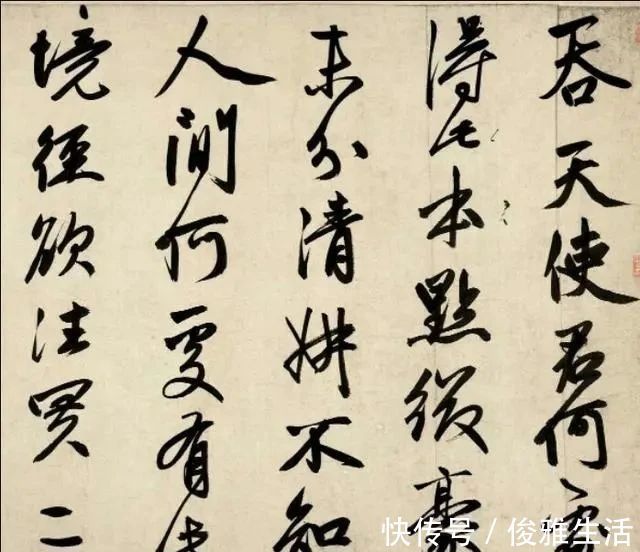 吞天使君何
得此本點綴毫
末分清妍不知
人間何處有
境徑欲往買二
快传号 / 俊雅生活